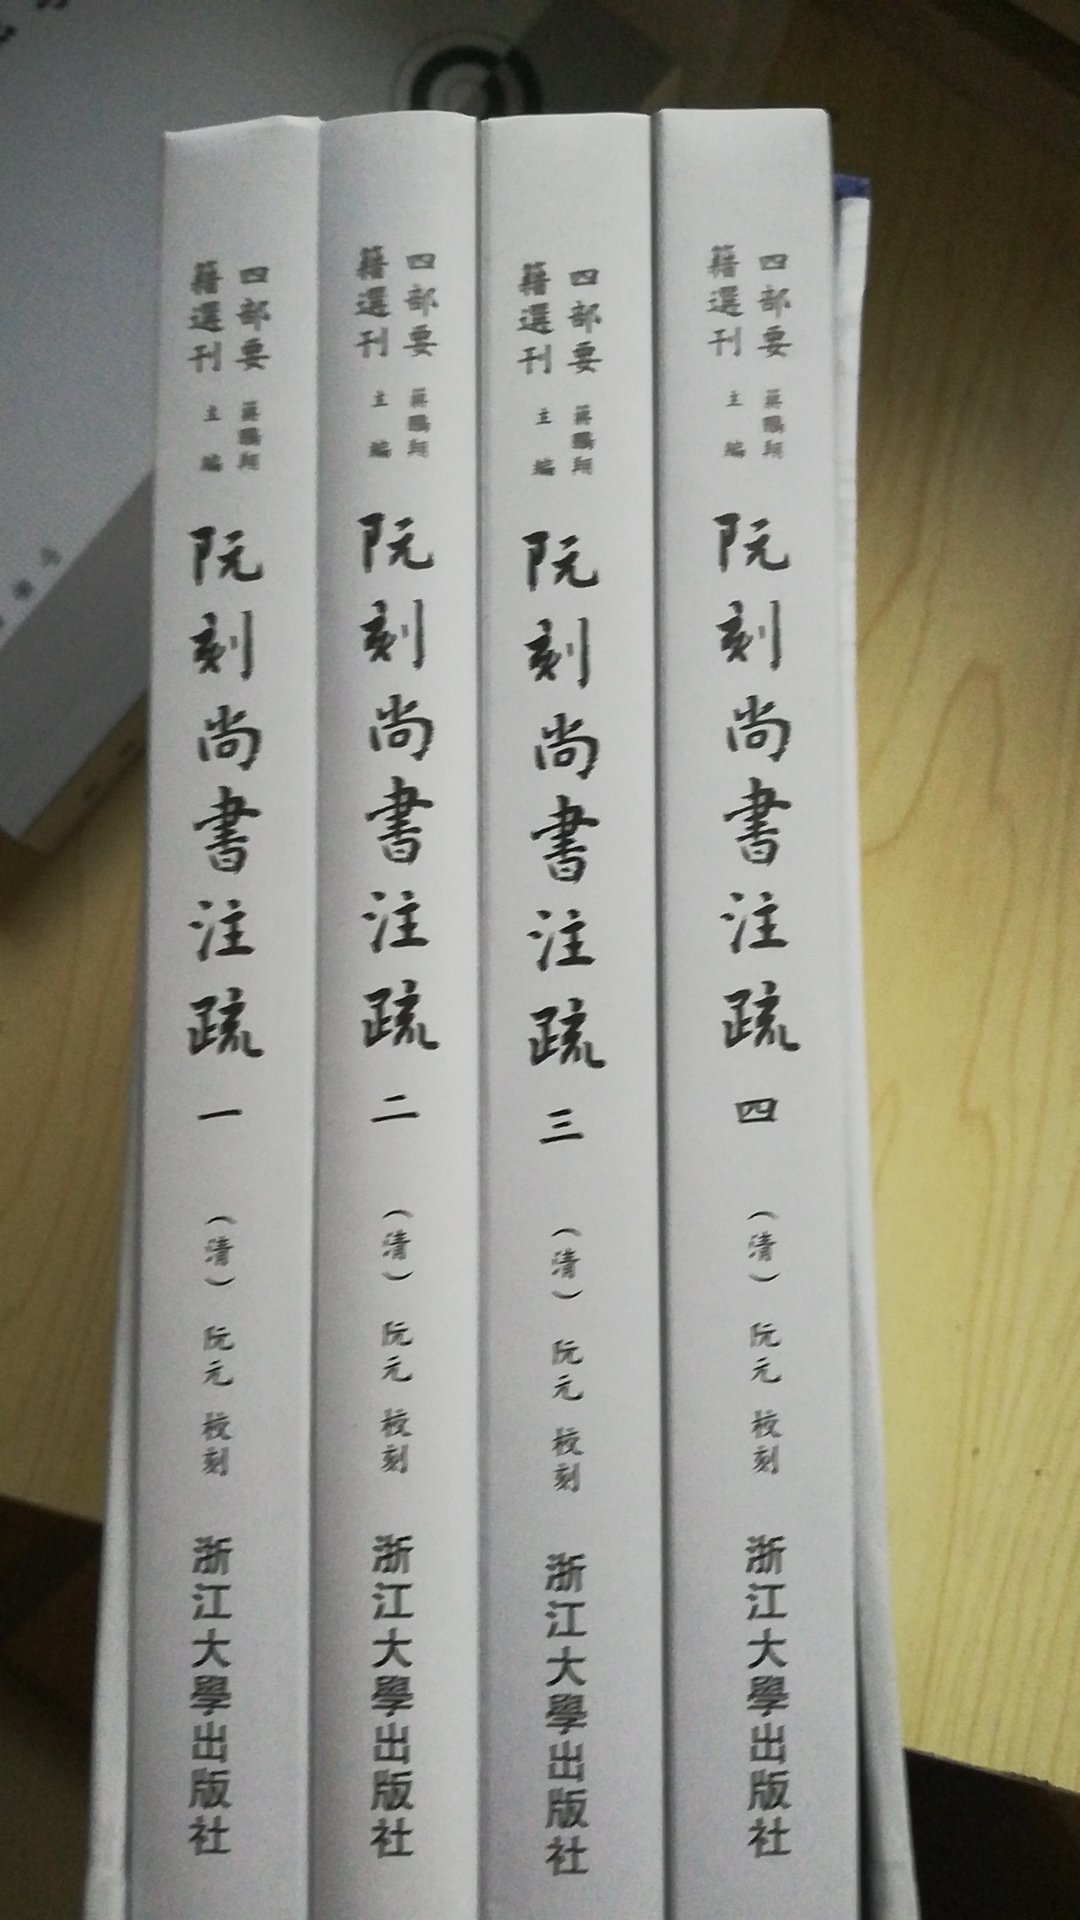 四部要
籍選刊
蔣鵬翔
主編
阮刻尚書注疏 一
（清）阮元 校刻
浙江大學出版社
四部要
籍選刊
蔣鵬翔
主編
阮刻尚書注疏 二
（清）阮元 校刻
浙江大學出版社
四部要
籍選刊
蔣鵬翔
主編
阮刻尚書注疏 三
（清）阮元 校刻
浙江大學出版社
四部要
籍選刊
蔣鵬翔
主編
阮刻尚書注疏 四
（清）阮元 校刻
浙江大學出版社